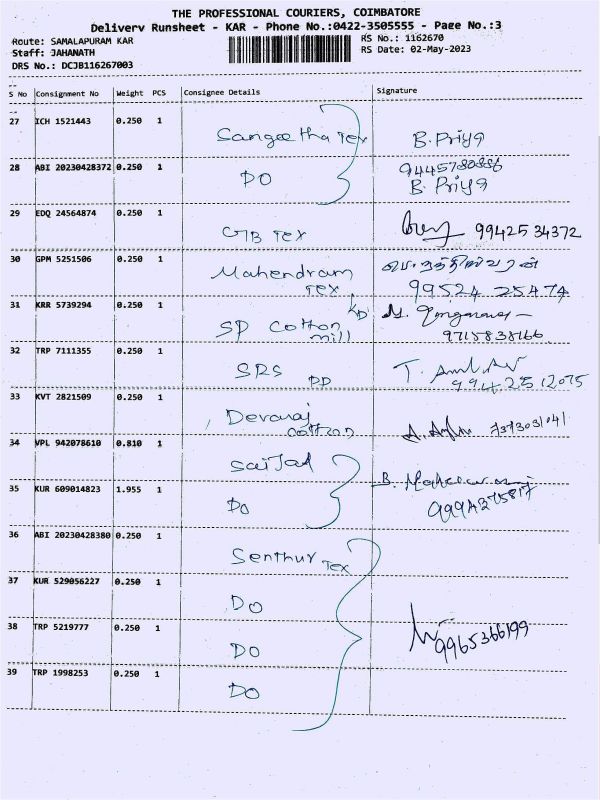 THE PROFESSIONAL COURIERS, COIMBATORE
Delivery Runsheet - KAR - Phone No.:0422-3505555 - Page No.:3
Route: SAMALAPURAM KAR
RS No.: 1162670
Staff: JAHANATH
RS Date: 02-May-2023
DRS No.: DCJB116267003
S No Consignment No Weight PCS Consignee Details Signature
27 ICH 1521443 0.250 1 Sangeetha Tex B. Priya
28 ABI 20230428372 0.250 1 DO 9445780886
B. Priya
29 EDQ 24564874 0.250 1 GTB Tex 99425 34372
30 GPM 5251506 0.250 1 Mahendram
Tex 99524 25474
31 KRR 5739294 0.250 1 SP Cotton
mill 9715838166
32 TRP 7111355 0.250 1 SRS PP T.
9942512075
33 KVT 2821509 0.250 1 Devaraj
cotton
34 VPL 942078610 0.810 1 Sai Jad
35 KUR 609014823 1.955 1 DO B.
9994275817
36 ABI 20230428380 0.250 1 Senthur Tex
37 KUR 529056227 0.250 1 DO
38 TRP 5219777 0.250 1 DO 9965366199
39 TRP 1998253 0.250 1 DO